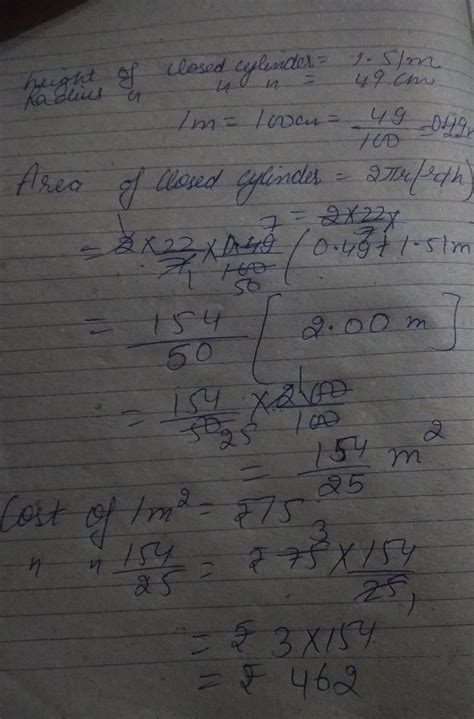 height of closed cylinder = 1.51m
Radius " " " = 49 cm
1m = 100cm = 49/100 = 0.49m
Area of closed cylinder = 2πr(r+h)
= 2 × 22/7 ×
= 2 × 22/7 × 0.49/100 50 ( 0.49 + 1.51m
= 154/50 [ 2.00 m ]
= 154/50 25 × 200/100
= 154/25 m²
Cost of 1m² = ₹75
" " 154/25 = ₹ 75 3 × 154/25 1
= ₹ 3×154
= ₹ 462